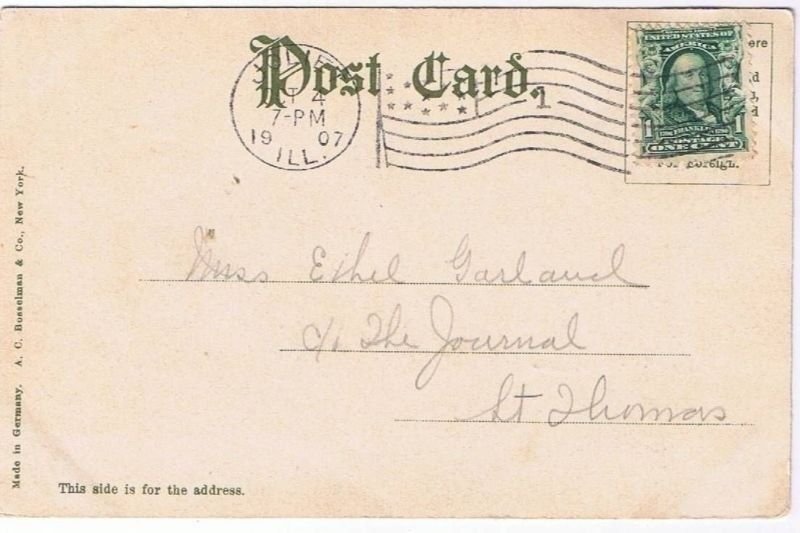 Post Card.
JOLIET
OCT 4
7-PM
1907
ILL.
1
UNITED STATES OF
AMERICA
FRANKLIN
1
1
ONE CENT
ere
d
For Foreign.
Miss Ethel Garland
c/o The Journal
St Thomas
This side is for the address.
Made in Germany. A. C. Bosselman & Co., New York.